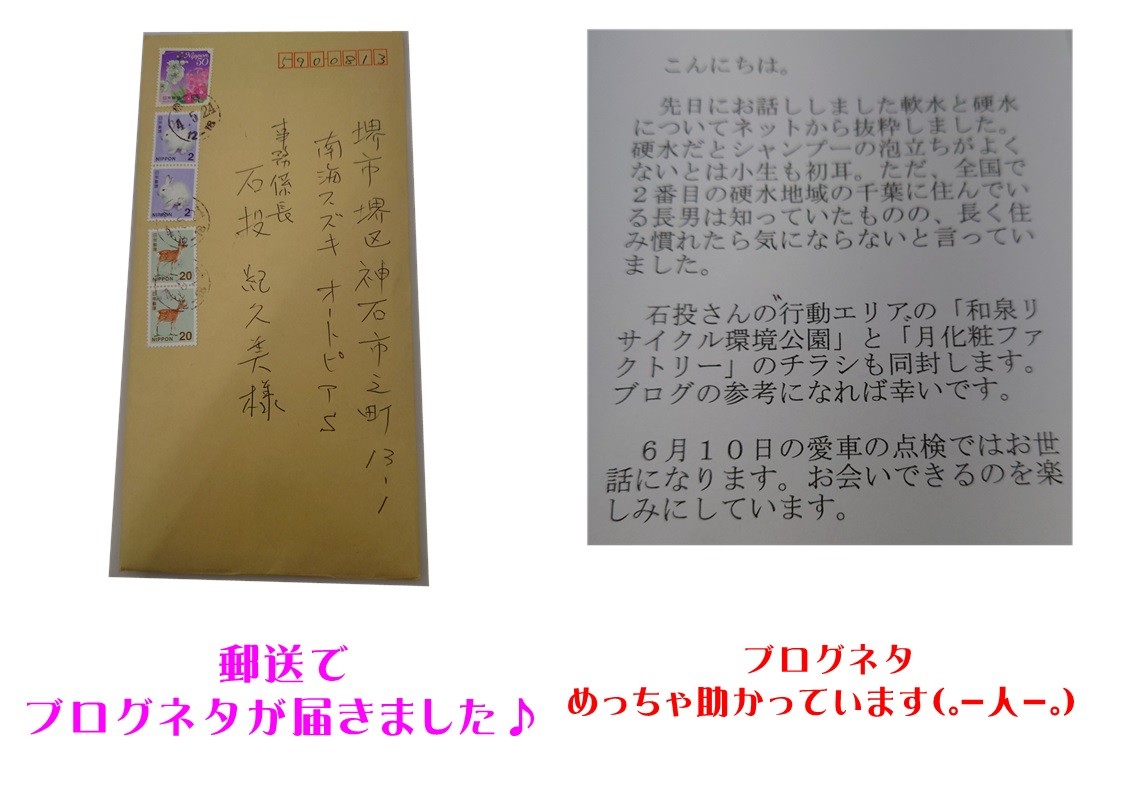 5900813
堺市堺区神石市之町13-1
南海スズキ オートピア S
事務係長
石投 紀久美様
Nippon
50
2
NIPPON
2
NIPPON
20
NIPPON
20
NIPPON
こんにちは。
先日にお話ししました軟水と硬水
についてネットから抜粋しました。
硬水だとシャンプーの泡立ちがよく
ないとは小生も初耳。ただ、全国で
２番目の硬水地域の千葉に住んでい
る長男は知っていたものの、長く住
み慣れたら気にならないと言ってい
ました。
石投さんの〝行動エリア〟の「和泉リ
サイクル環境公園」と「月化粧ファ
クトリー」のチラシも同封します。
ブログの参考になれば幸いです。
６月１０日の愛車の点検ではお世
話になります。お会いできるのを楽
しみにしています。
郵送で
ブログネタが届きました♪
ブログネタ
めっちゃ助かっています(｡ー人ー｡)